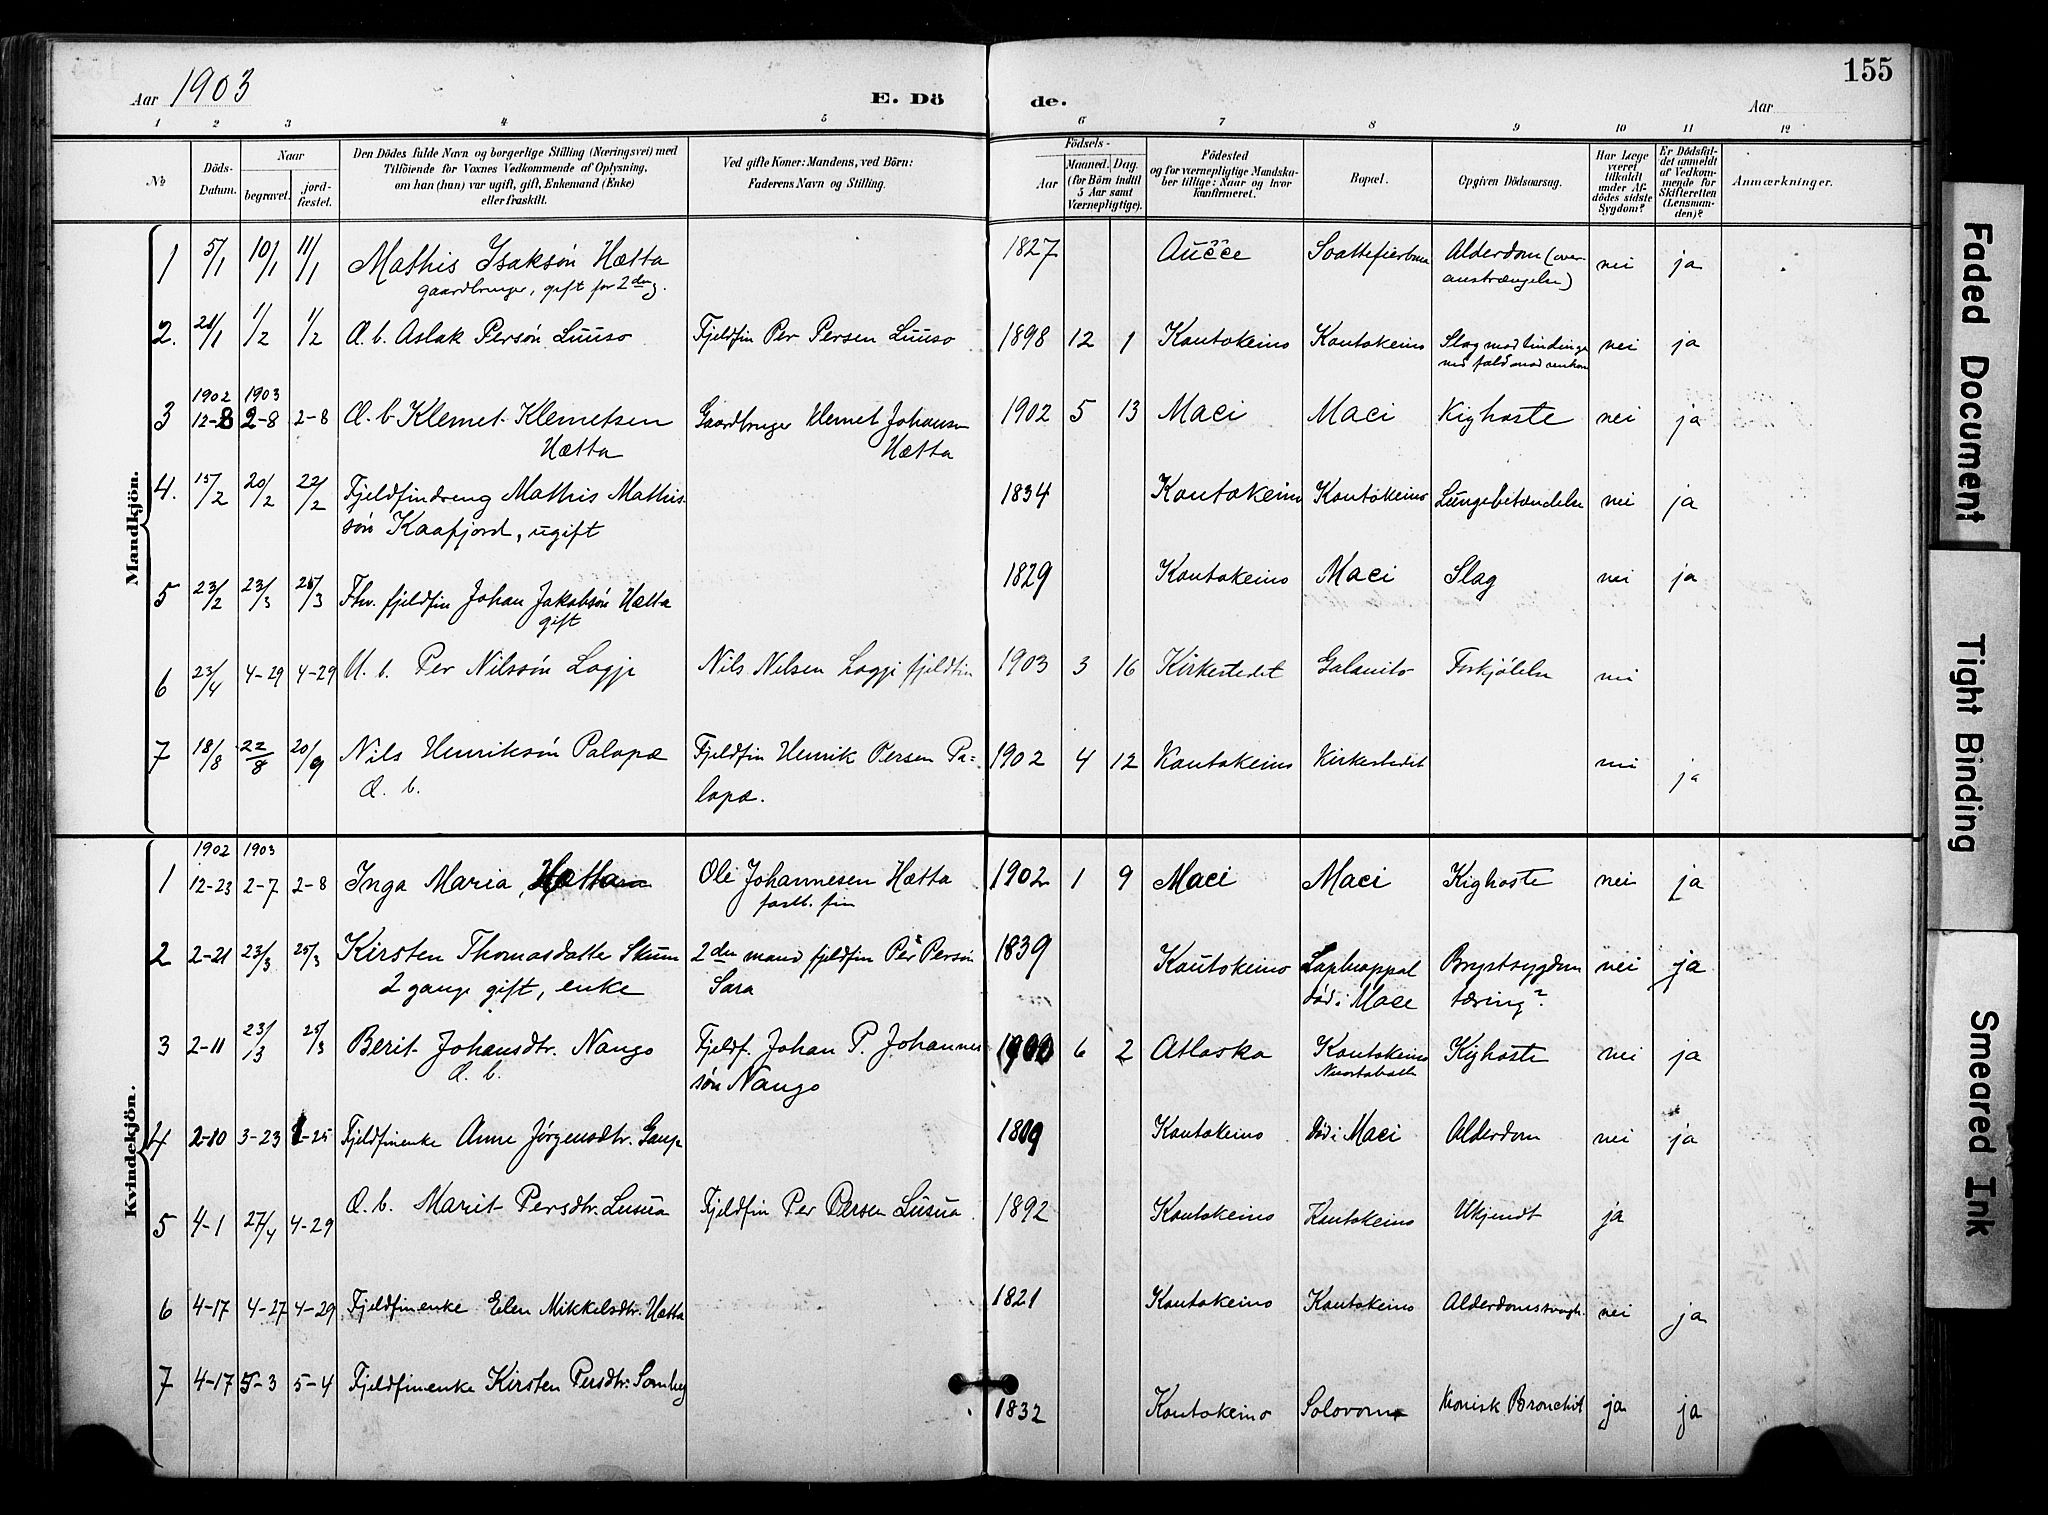 155
Aar 1903
E. Döde.
Aar
1 2 3 4 5 6 7 8 9 10 11 12
No
Döds-Datum.
Naar
begravet.
jordfæstet.
Den Dödes fulde Navn og borgerlige Stilling (Næringsvei) med
Tilföiende for Voxnes Vedkommende af Oplysning,
om han (hun) var ugift, gift, Enkemand (Enke)
eller fraskilt.
Ved gifte Koner: Mandens, ved Börn:
Faderens Navn og Stilling.
Födsels-
Aar
Maaned. Dag.
(for Börn indtil
5 Aar samt
Værnepligtige).
Födested
og for værnepligtige Mandskaber tillige: Naar og hvor
konfirmeret.
Bopæl.
Opgiven Dödsaarsag.
Har Læge
været
tilkaldt
under Afdödes sidste
Sygdom?
Er Dödsfaldet anmeldt
af Vedkommende for
Skifteretten
(Lensmanden)?
Anmærkninger.
Mandkjön.
1 5/1 10/1 11/1 Mathis Isaksön Hætta 1827 Aučče Alderdom (over-
gaardbruger, gift for 2den g. anstrængelse) nei ja
2. 21/1 1/2 1/2 Æ. b. Aslak Persön Luuso Fjeldfin Per Persen Luuso 1898 12 1 Kautokeino Kautokeino Slag mod tindinge nei ja
1902 1903
3 12-8 2-8 2-8 Æ. b. Klemet Klemetsen Gaardbruger Klemet Johansen 1902 5 13 Maci Maci Kighoste nei ja
Hætta Hætta
4. 15/2 20/2 22/2 Fjeldfindreng Mathis Mathis- 1834 Kautokeino Kautokeino Lungebetændelse nei ja
sön Kaafjord, ugift
5 23/2 23/3 25/3 Fhv. fjeldfin Johan Jakobsön Hætta 1829 Kautokeino Maci Slag nei ja
gift
6 23/4 4-29 4-29 U. b. Per Nilssön Logje Nils Nilsen Logje fjeldfin 1903 3 16 Kirkestedet Galanito Forkjölelse nei
7 18/8 22/8 20/9 Nils Henriksön Palopæ Fjeldfin Henrik Persen Pa- 1902 4 12 Kautokeino Kirkestedet nei ja
Æ. b. lopæ.
Kvindekjön.
1902 1903
1 12-23 2-7 2-8 Inga Maria Hætta Ole Johannesen Hætta 1902 1 9 Maci Maci Kighoste nei ja
fastb. fin
2 2-21 23/3 25/3 Kirsten Thomasdatte Skum 2den mand fjeldfin Per Persön 1839 Kautokeino Brystsygdom nei ja
2 gange gift, enke Sara död i Mace tæring?
3 2-11 23/3 25/3 Berit Johansdtr. Nango Fjeldf. Johan P. Johannes 1902 6 2 Atlaska Kautokeino Kighoste nei ja
Æ. b. sön Nango
4 2-10 3-23 -25 Fjeldfinenke Anne Jørgensdtr. Gaup 1809 Kautokeino död i Maci Alderdom nei ja
5 4-1 27/4 4-29 Æ. b. Marit Persdtr. Lusua Fjeldfin Per Persen Lusua 1892 Kautokeino Kautokeino Ukjendt ja
6 4-17 4-27 4-29 Fjeldfinenke Elen Mikkelsdtr. Hætta 1821 Kautokeino Kautokeino Alderdomssvagh. nei ja
7 4-17 5-3 5-4 Fjeldfinenke Kirsten Persdtr. Somby 1832 Kautokeino Kronisk Bronchit ja ja
Faded Document
Tight Binding
Smeared Ink